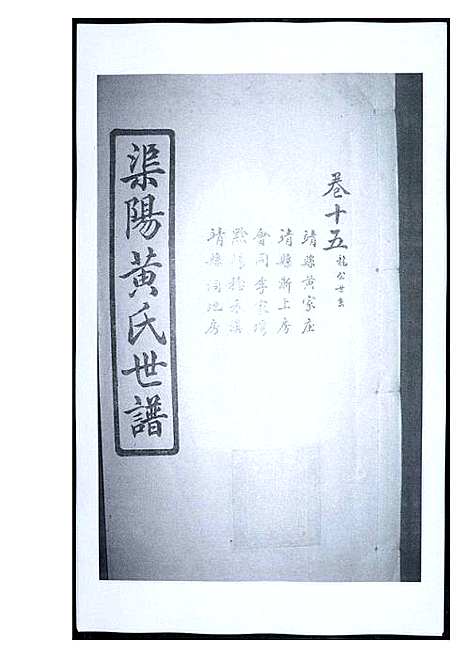 卷十五 龍公世系
靖縣黃家庄
靖縣新上房
會同李家灣
黔陽穆禾溪
靖縣潤地房
渠陽黃氏世譜